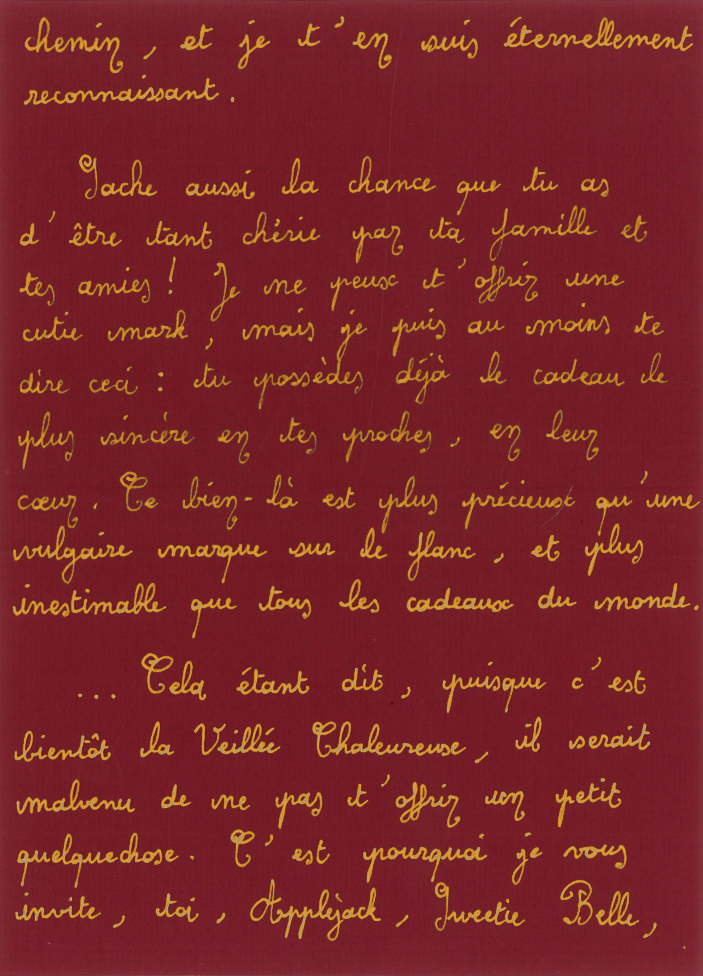 chemin, et je t'en suis éternellement
reconnaissant.
Sache aussi la chance que tu as
d'être tant chérie par ta famille et
tes amies ! Je ne peux t'offrir une
cutie mark, mais je puis au moins te
dire ceci : tu possèdes déjà le cadeau le
plus sincère en tes proches, en leur
cœur. Ce bien-là est plus précieux qu'une
vulgaire marque sur le flanc, et plus
inestimable que tous les cadeaux du monde.
... Cela étant dit, puisque c'est
bientôt la Veillée Chaleureuse, il serait
malvenu de ne pas t'offrir un petit
quelquechose. C'est pourquoi je vous
invite, toi, Applejack, Sweetie Belle,